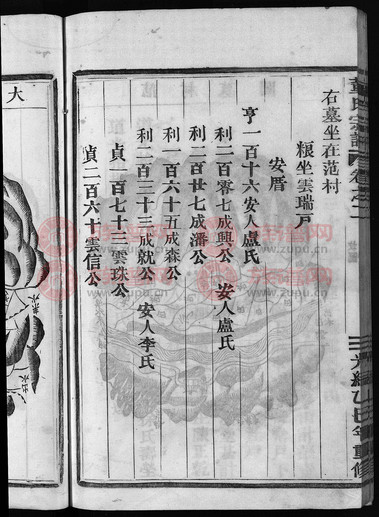 右墓坐在范村
糧坐雲瑞戶
安厝
亨一百十六安人盧氏
利二百零七成興公 安人盧氏
利二百廿七成潘公
利一百六十五成森公
利二百三十三成就公 安人李氏
貞一百七十三雲珠公
貞二百六十雲信公
光緒乙巳年重修
大